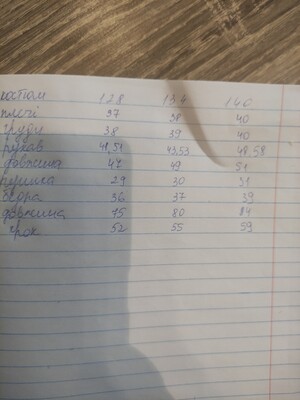 костюм 128 134 140
плечі 37 38 40
груди 38 39 40
рукав 41,51 43,53 48,58
довжина 47 49 51
29 30 31
бедра 36 37 39
довжина 75 80 84
крок 52 55 59